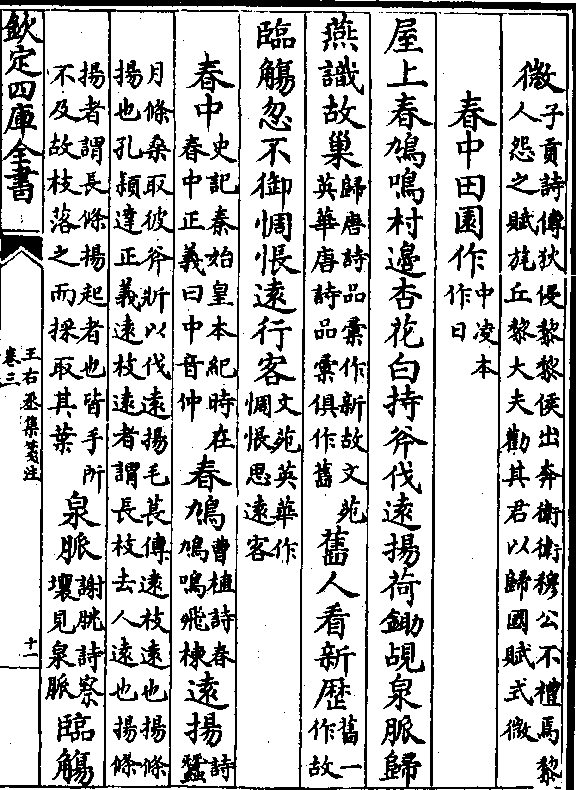 微子貢詩傅狄侵黎黎侯出奔衛衛穆公不禮焉黎人怨之賦旄丘黎大夫勸其君以歸國賦式微
春中田園作中凌本作日
屋上春鳩鳴村邊杏花白持斧伐遠揚荷鋤覘泉脈歸
燕識故巢歸唐詩品彚作新故文苑英華唐詩品彚俱作舊舊人看新歴舊一作故
臨觴忽不御惆悵遠行客文苑英華作惆悵思遠客
春中史記秦始皇本紀時在春中正義曰中音仲春鳩曹植詩春鳩鳴飛棟遠揚詩蠶
月條桑取彼斧斨以伐遠揚毛萇傳遠枝遠也揚條揚也孔頴達正義遠枝遠者謂長枝去人遠也揚條
揚者謂長條揚起者也皆手所不及故枝落之而採取其葉泉脈謝朓詩察壤見泉脈臨觴
欽定四庫全書
王右丞集箋注
卷三
十一